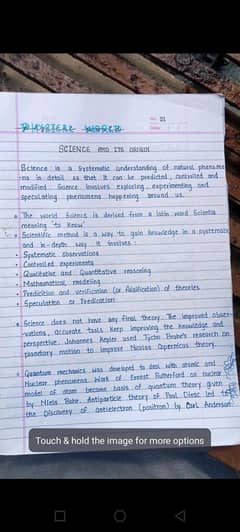 No. 01
Date
PHYSICAL WORLD
SCIENCE AND ITS ORIGIN
Science is a systematic understanding of natural phenome
-na in detail so that it can be predicted, controlled and
modified. Science involves exploring, experimenting and
speculating phenomena happening around us.
The world Science is derived from a latin word Scientia
meaning 'to know'
Scientific method is a way to gain knowledge in a systematic
and in-depth way. It involves:
Systematic observations
Controlled experiments
Qualitative and Quantitative reasoning
Mathematical modeling
Prediction and verification (or falsification) of theories
Speculation or Predication
Science does not have any final theory. The improved obser-
-vations, accurate tools keep improving the knowledge and
perspective. Johannes Kepler used Tycho Brahe's research on
planetary motion to improve Nicolas Copernicus theory.
Quantum mechanics was developed to deal with atomic and
Nuclear phenomena. Work of Ernest Rutherford on nuclear
model of atom became basis of quantum theory given
by Niels Bohr. Antiparticle theory of Paul Dirac led to
the Discovery of antielectron (positron) by Carl Anderson.
Touch & hold the image for more options